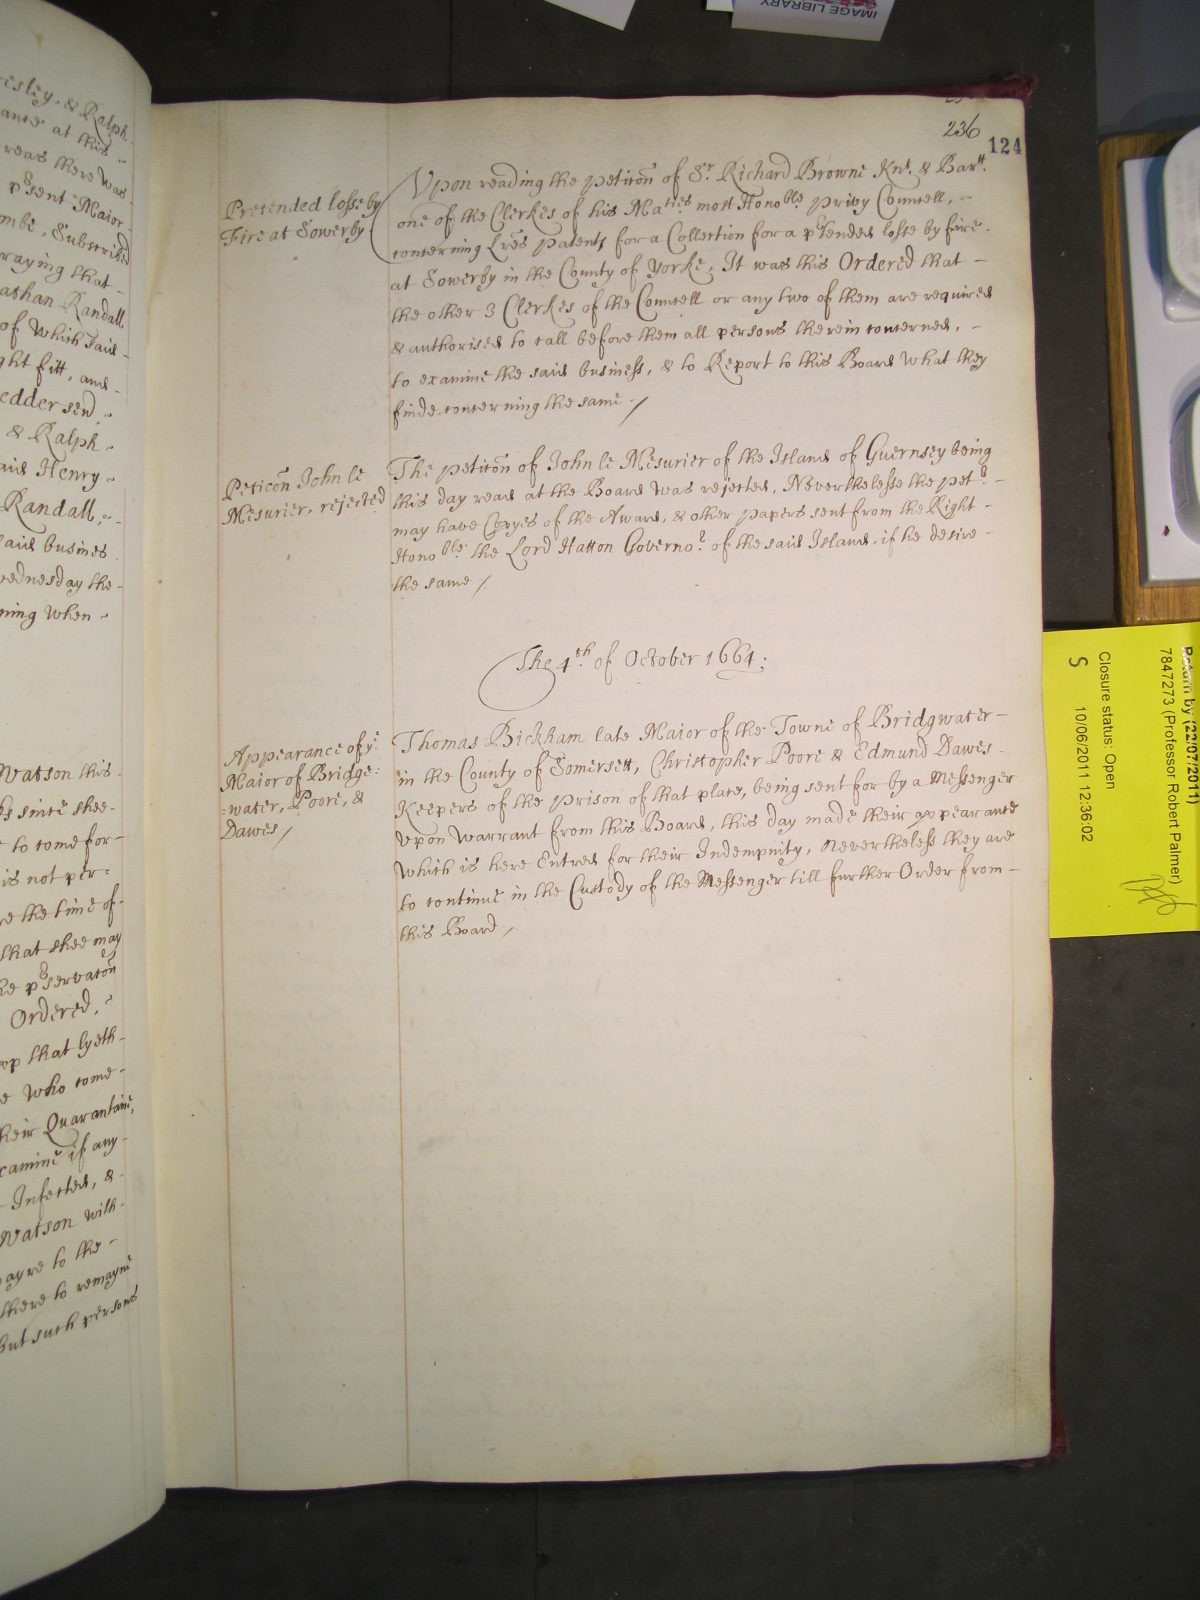 IMAGE LIBRARY
236
124
Pretended losse by
Fire at Sowerby
Vpon reading the petitõn of Sr. Richard Browne Knt. & Bartt.
one of the Clerkes of his Maties most Honoble privy Councell, -
concerning Lrẽs patents for a Collection for a ptended losse by fire -
at Sowerby in the County of Yorke, It was this Ordered that -
the other 3 Clerkes of the Councell or any two of them are required
& authorised to call before them all persons therein concerned, -
to examine the said business, & to Report to this Board what they
finde concerning the same /
Peticõn John le
Mesurier, rejected
The petitõn of John le Mesurier of the Island of Guernsey being
this day read at the Board was rejected, Neverthelesse the petr. -
may have Copyes of the Award, & other papers sent from the Right -
Honoble the Lord Hatton Governor. of the said Island, if he desire -
the same /
The 4th. of October 1664;
Appearance of ye.
Maior of Bridge=
=water, Poore, &
Dawes /
Thomas Bickham late Maior of the Towne of Bridgwater -
in the County of Somersett, Christopher Poore & Edmund Dawes -
Keepers of the prison of that place, being sent for by a Messenger
vpon warrant from this Board, this day made their appearance
which is here Entred for their Indempnity, nevertheless they are
to continue in the Custody of the Messenger till further Order from -
this Board /
esley, & Ralph
ance at this -
reas there was
psent Maior
mbe, Substribed
raying that -
athan Randall
of which said -
ght fitt, and -
edder send -
& Ralph -
aid Henry -
Randall, -
said busines
wednesday the -
ning when -
Watson this
s since shee -
to come for -
is not per=
re the time of -
that shee may
he pservatõn
Ordered, -
op that lyeth -
e who come -
heir Quarantaine,
xamine if any -
Infected, & -
Watson with -
ayre to the -
there to remayne
but such persons
Return by (22/07/2011)
7847273 (Professor Robert Palmer)
Closure status: Open
S 10/06/2011 12:36:02